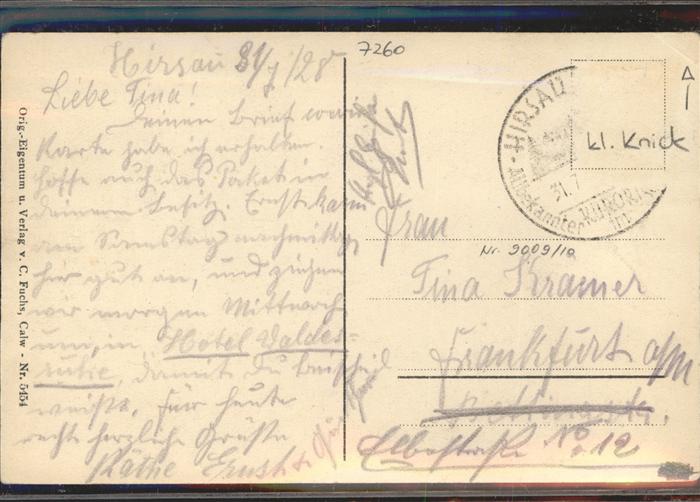 7260
Hirsau 31/7/28
Liebe Tina!
Deinen Brief sowie
Karte habe ich erhalten.
hoffe auch das Paket in
deinem Besitz. Ernst kam
am Samstag nachmittag
hier gut an, und ziehen
wir morgen Mittwoch
um, in "Hotel Waldes-
ruhe, damit du Bescheid
weisst. Für heute
recht herzliche Grüsse
Käthe Ernst +
Orig.-Eigentum u. Verlag v. C. Fuchs, Calw - Nr. 5454
HIRSAU
31.7
Altbekannter KURORT
kl. Knick
Nr. 9009/10
Frau
Tina Kramer
Frankfurt a/m
Elbestraße No. 12